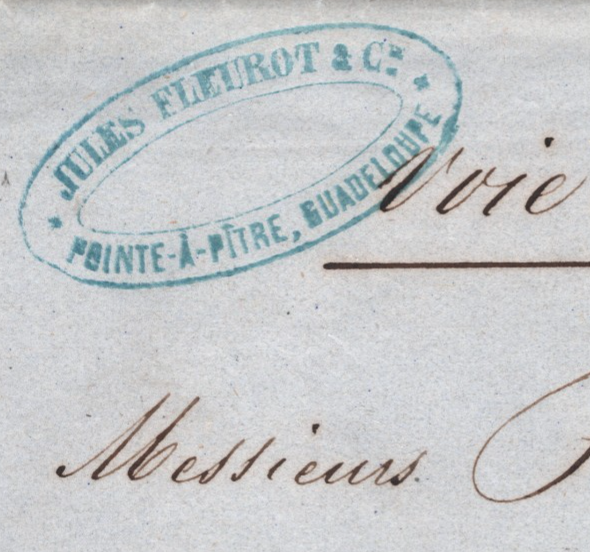 JULES FLEUROT & Cie
POINTE-À-PÎTRE, GUADELOUPE
Voie
Messieurs